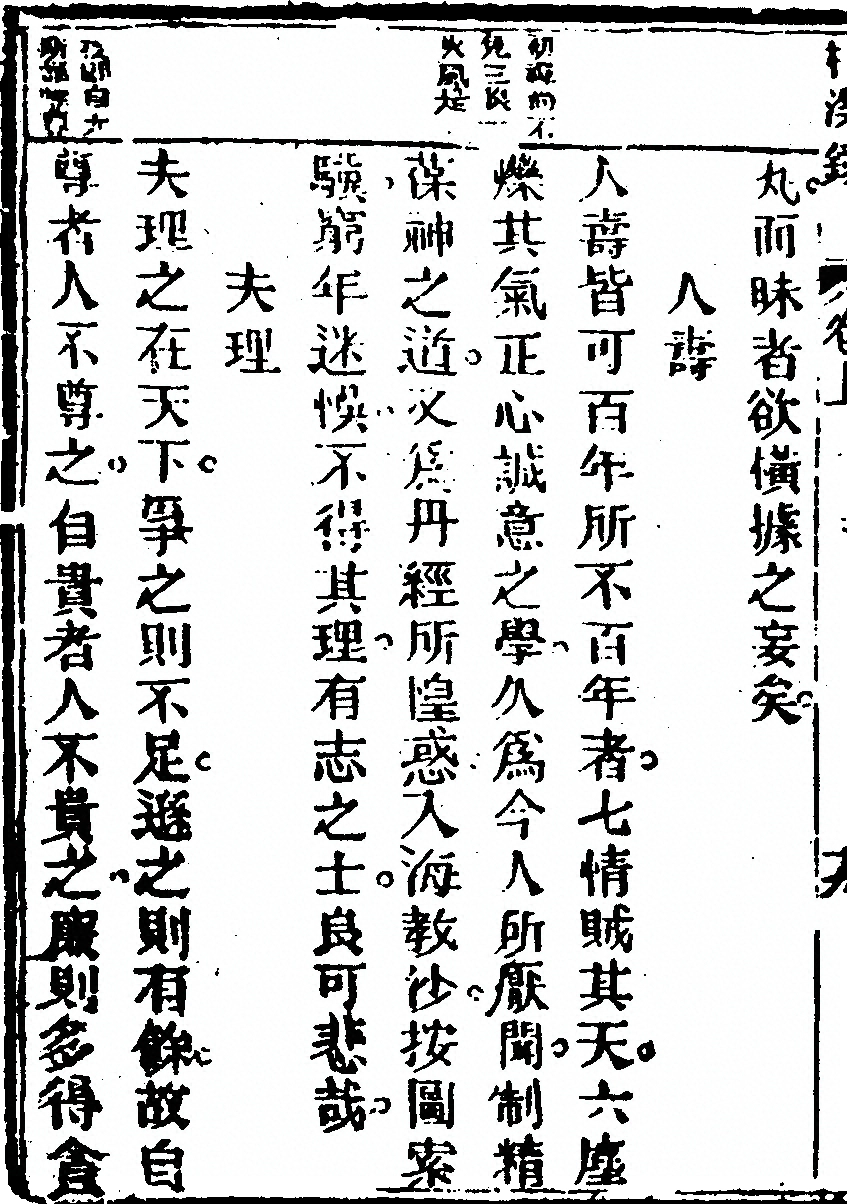 丸而昧者欲慎據之妄矣
人壽
人壽皆可百年所不百年者七情賊其天六塵
爍其氣正心誠意之學久爲今人所厭聞制精
葆神之道又爲丹經所惶惑入海教沙按圖索
驥窮年迷悞不得其理有志之士良可悲哉
夫理
夫理之在天下爭之則不足遜之則有餘故自
尊者人不尊之自貴者人不貴之廉則多得貪